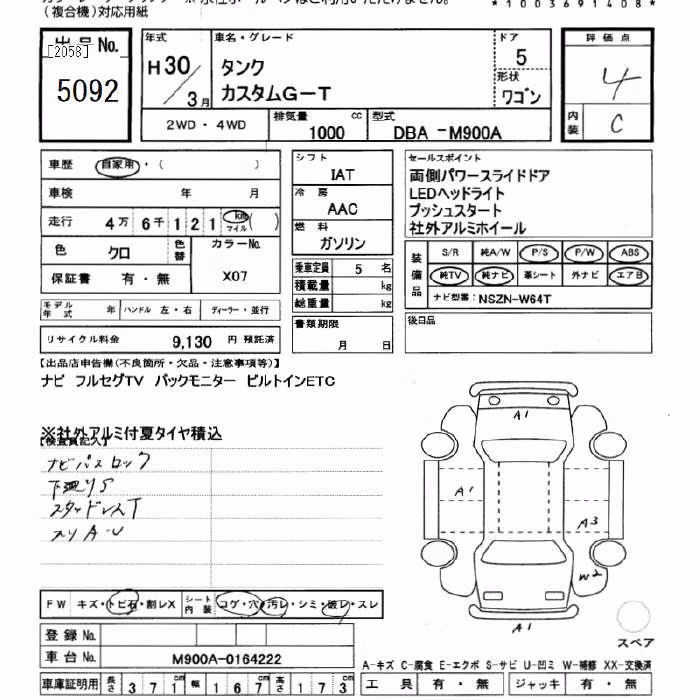 (複合機)対応用紙
*1003691408*
出品No.
[2058]
5092
年式
H30/3月
車名・グレード
タンク
カスタムG-T
ドア
5
形状
ワゴン
評価点
4
内装
C
2WD・4WD
排気量
1000 cc
型式
DBA -M900A
車歴 自家用・( )
車検 年 月
走行 4万6千121 km マイル ( )
色 クロ
色替
カラーNo.
X07
保証書 有・無
モデル年式 年
ハンドル 左・右
ディーラー・並行
リサイクル料金 9,130 円 預託済
シフト
IAT
冷房
AAC
燃料
ガソリン
乗車定員 5 名
積載量 kg
総重量 kg
書類期限
月 日
セールスポイント
両側パワースライドドア
LEDヘッドライト
プッシュスタート
社外アルミホイール
装備品
S/R 純A/W P/S P/W ABS
純TV 純ナビ 革シート 外ナビ エアB
ナビ型番: NSZN-W64T
後日品
【出品店申告欄(不良箇所・欠品・注意事項等)】
ナビ フルセグTV バックモニター ビルトインETC
※社外アルミ付夏タイヤ積込
【検査員記入】
ナビパスロック
下廻りS
スタッドレスT
スリA-U
A1
A1
A3
W2
A1
スペア
FW キズ・トビ石・割レX
シート内装 コゲ・穴・汚レ・シミ・破レ・スレ
登録No.
車台No. M900A-0164222
車庫証明用 長さ 371 幅 167 高さ 173
A-キズ C-腐食 E-エクボ S-サビ U-凹ミ W-補修 XX-交換済
工具 有・無 ジャッキ 有・無